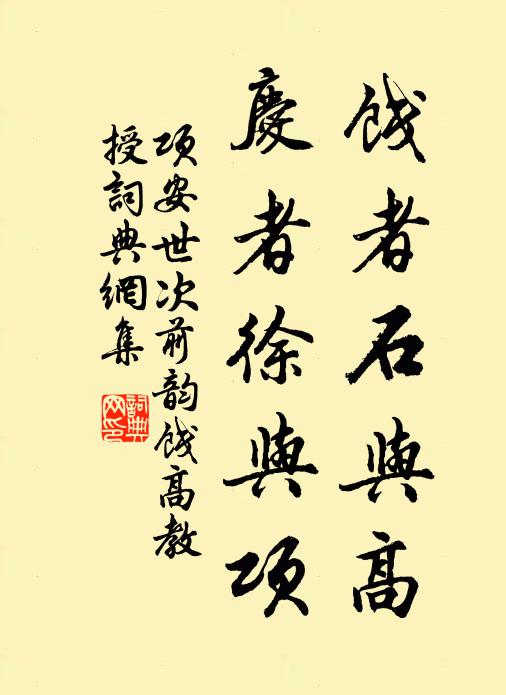 餞者石與高
慶者徐與項
項安世次前韵餞高教
授詞典網集
詞典
网印